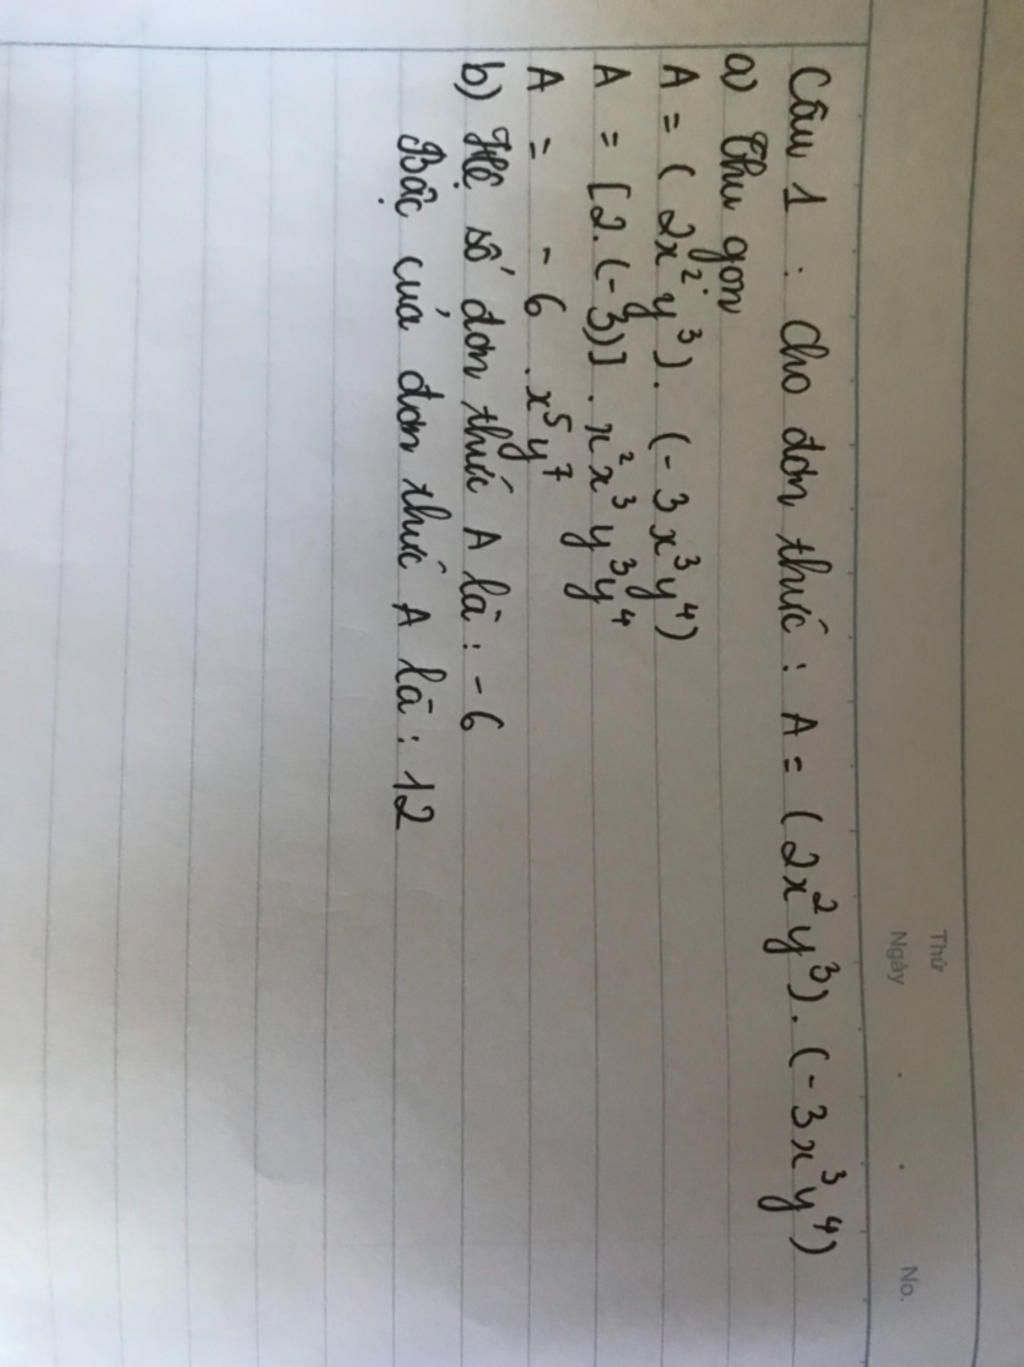 Thứ
Ngày . . No.
Câu 1 : Cho đơn thức : A = (2x²y³). (-3x³y⁴)
a) Thu gọn
A = ( 2x²y³). (-3x³y⁴)
A = [2.(-3)] . x²x³y³y⁴
A = -6 . x⁵y⁷
b) Hệ số đơn thức A là : -6
Bậc của đơn thức A là : 12